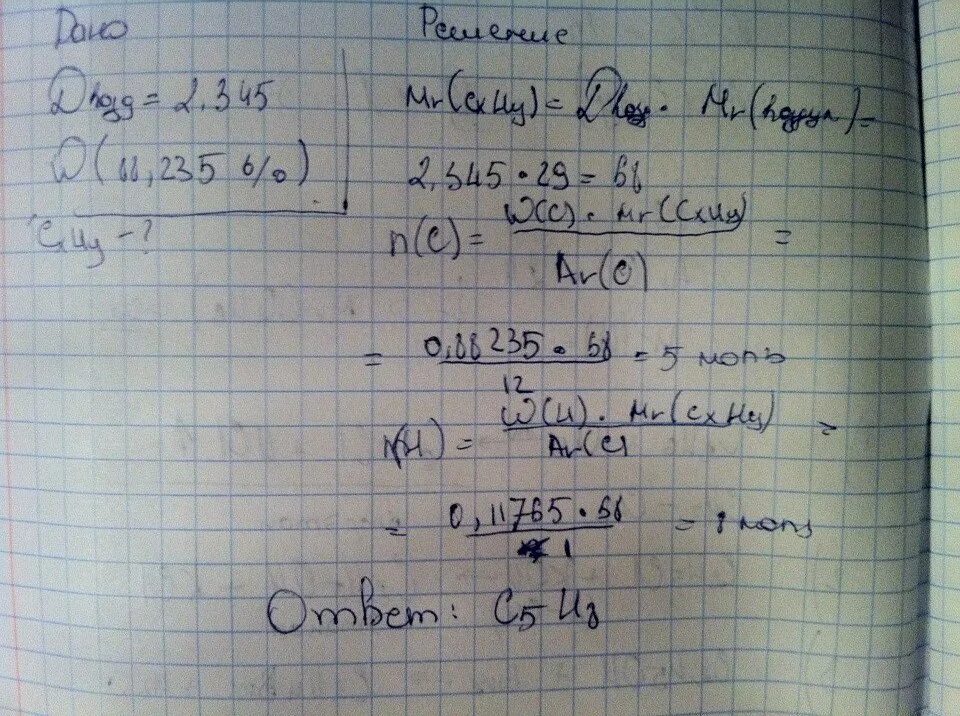 Дано
Dвозд = 2,345
W(88,235 %)
CxHy - ?
Решение
Mr(CxHy) = Dвозд · Mr(воздуха) =
2,345 · 29 = 68
n(C) = W(C) · Mr(CxHy) / Ar(C) =
= 0,88235 · 68 / 12 = 5 моль
n(H) = W(H) · Mr(CxHy) / Ar(C) =
= 0,11765 · 68 / 1 = 8 моль
Ответ: C5H8